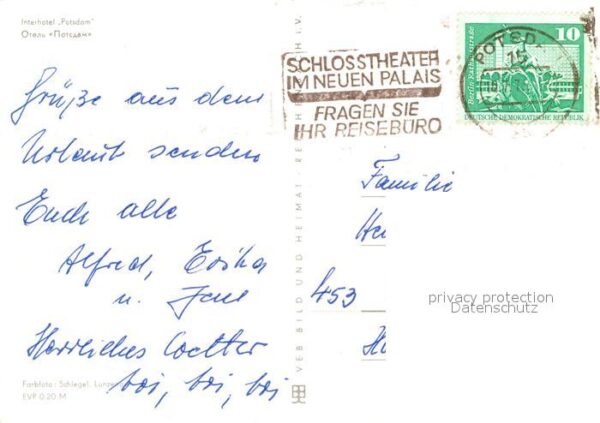 Interhotel „Potsdam"
Отель «Потсдам»
SCHLOSSTHEATER
IM NEUEN PALAIS
FRAGEN SIE
IHR REISEBÜRO
POTSD
10
Berlin Rathausstraße
DEUTSCHE DEMOKRATISCHE REPUBLIK
Grüße aus dem
Urlaub senden
Euch alle
Alfred, Erika
u. Jens
Herrliches Wetter
boi, boi, boi
Familie
He
453
H
privacy protection
Datenschutz
VEB BILD UND HEIMAT · REICHENBACH I. V.
Farbfoto: Schlegel,
EVP 0,20 M